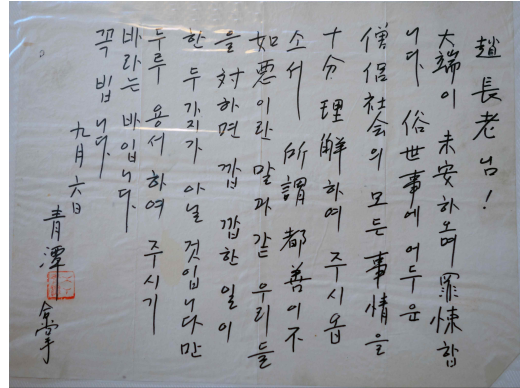 趙長老님!
大端이 未安하오며 罪悚합
니다. 俗世事에 어두운
僧侶社會의 모든 事情을
十分 理解하여 주시옵
소서 所謂 都善이 不
如悪이란 말과 같 우리들
을 対하면 깝깝한 일이
한 두 가지가 아닐 것입니다만
두루 용서하여 주시기
바라는 바입니다.
꼭 빕니다.
九月 六日
青潭 合掌